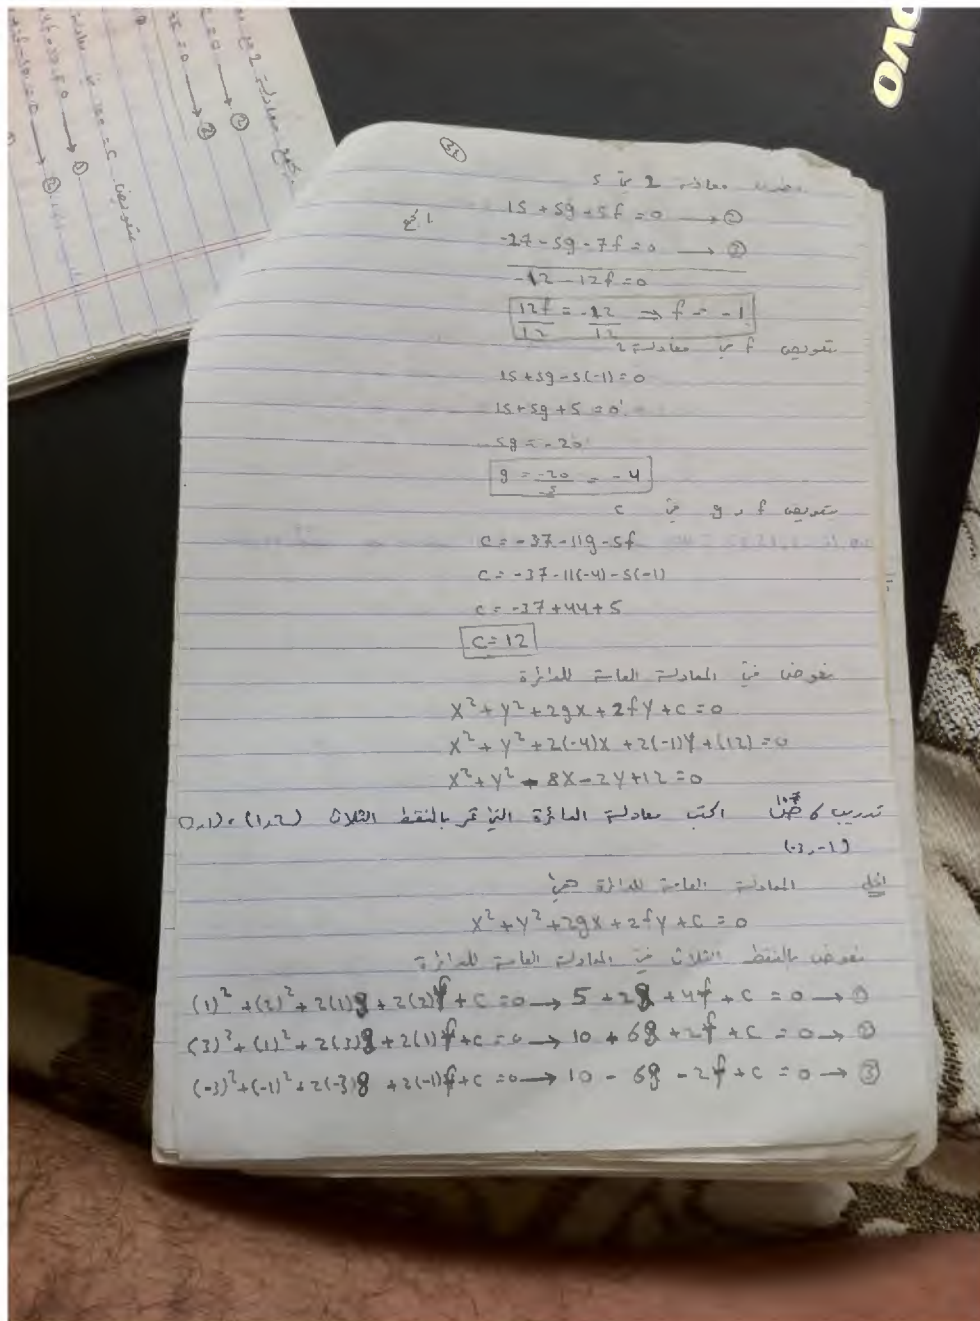 33
معادلة 2 في 5
15 + 5g - 5f = 0 → ②
-27 - 5g - 7f = 0 → ③
-12 - 12f = 0
12f/12 = -12/12 ⇒ f = -1
تعويض f في معادلة 2
15 + 5g - 5(-1) = 0
15 + 5g + 5 = 0
5g = -20
g = -20/-5 = -4
تعويض f و g في c
C = -37 - 11g - 5f
C = -37 - 11(-4) - 5(-1)
C = -37 + 44 + 5
C = 12
نعوض في المعادلة العامة للدائرة
x² + y² + 2gx + 2fy + c = 0
x² + y² + 2(-4)x + 2(-1)y + (12) = 0
x² + y² - 8x - 2y + 12 = 0
تدريب 6 ص 107 اكتب معادلة الدائرة التي تمر بالنقط الثلاث (1,2)،
(-3,-1)
الحل المعادلة العامة للدائرة هي
x² + y² + 2gx + 2fy + c = 0
نعوض بالنقط الثلاث في المعادلة العامة للدائرة
(1)² + (2)² + 2(1)g + 2(2)f + c = 0 → 5 + 2g + 4f + c = 0 → ①
(3)² + (1)² + 2(3)g + 2(1)f + c = 0 → 10 + 6g + 2f + c = 0 → ②
(-3)² + (-1)² + 2(-3)g + 2(-1)f + c = 0 → 10 - 6g - 2f + c = 0 → ③